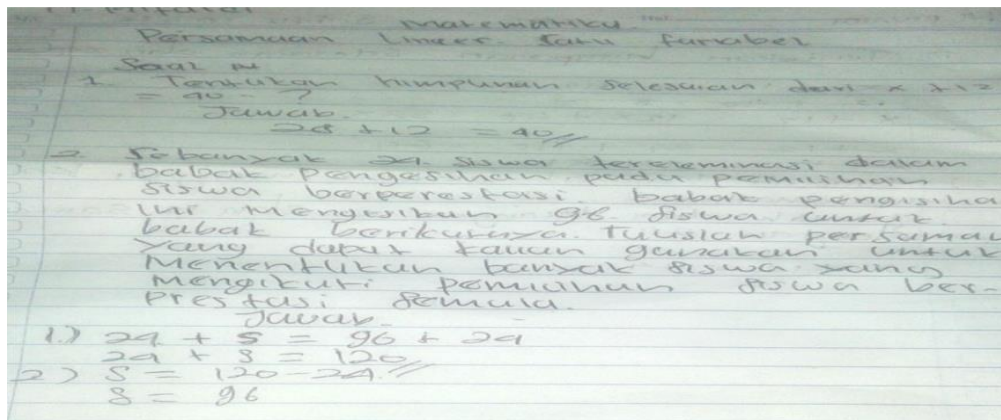 Matematika
Persamaan Linear Satu Fariabel
Soal
1. Tentukan himpunan selesaian dari x + 12
= 40 - ?
Jawab
28 + 12 = 40
2. Sebanyak 24 siswa tereleminasi dalam
babak pengesihan pada pemilihan
siswa berperestasi. babak pengisiha
ini mengisikan 96 siswa untuk
babak berikutnya. Tulislah persamaa
yang dapat kalian gunakan untuk
Menentukan banyak siswa yang
Mengikuti pemilihan siswa ber-
prestasi semula.
Jawab
1.) 24 + S = 96 + 24
24 + S = 120
2) S = 120 - 24
S = 96